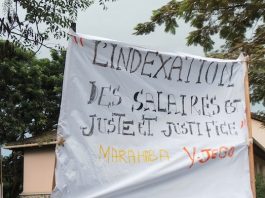 "L'INDEXATION
DES SALAIRES EST
JUSTE ET JUSTIFIÉE"
MARAMBA Y-JEGO